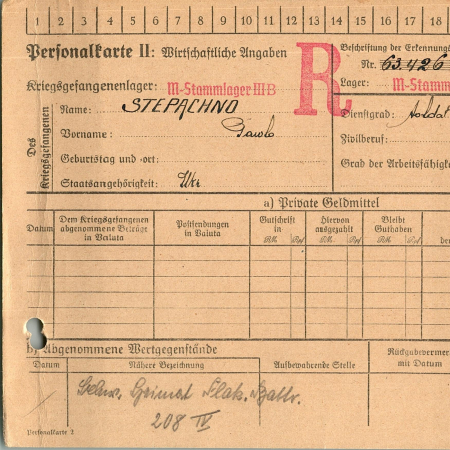 1 2 3 4 5 6 7 8 9 10 11 12 13 14 15 16 17 18
Personalkarte II: Wirtschaftliche Angaben
R
Beschriftung der Erkennungs
Nr. 63426
Kriegsgefangenenlager: M-Stammlager III B
Lager: M-Stamm
Des Kriegsgefangenen
Name: STEPACHNO
Dienstgrad: Soldat
Vorname: Pawlo
Zivilberuf:
Geburtstag und -ort:
Grad der Arbeitsfähigke
Staatsangehörigkeit: Ukr
a) Private Geldmittel
Datum
Dem Kriegsgefangenen abgenommene Beträge in Valuta
Postsendungen in Valuta
Gutschrift in
RM Rpf
Hiervon ausgezahlt
RM Rpf
Bleibt Guthaben
RM Rpf
b) Abgenommene Wertgegenstände
Datum
Nähere Bezeichnung
Aufbewahrende Stelle
Rückgabevermer
mit Datum
Heimat Flak. Battr.
208 IV
Personalkarte 2